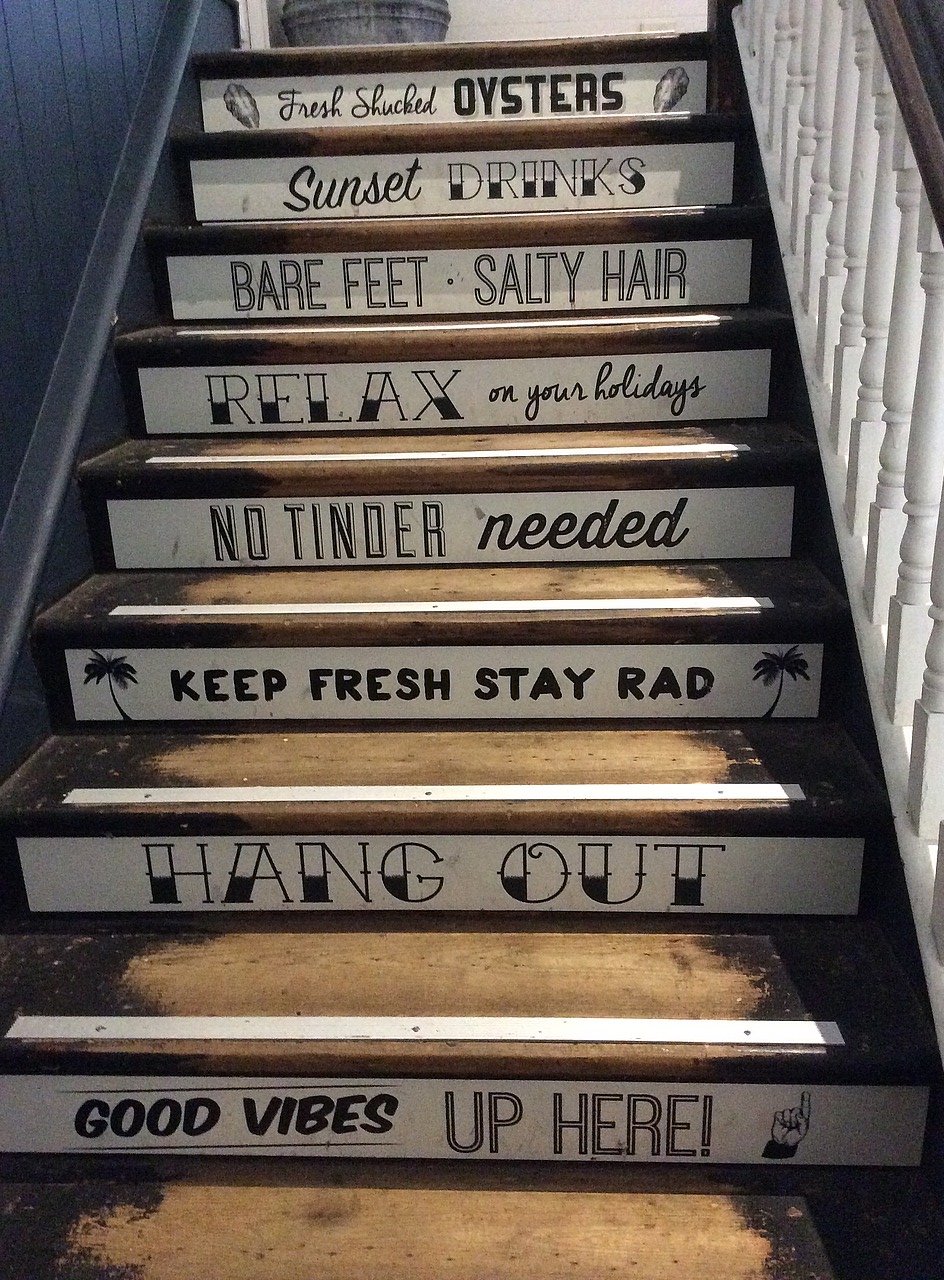 Fresh Shucked OYSTERS
Sunset DRINKS
BARE FEET · SALTY HAIR
RELAX on your holidays
NO TINDER needed
KEEP FRESH STAY RAD
HANG OUT
GOOD VIBES UP HERE!